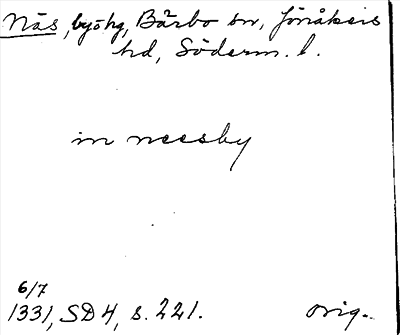 Näs, by o hg, Bärbo sn, Jönåkers
hd, Söderm. l.
in neesby
6/7
1331, SD 4, s. 221. orig.